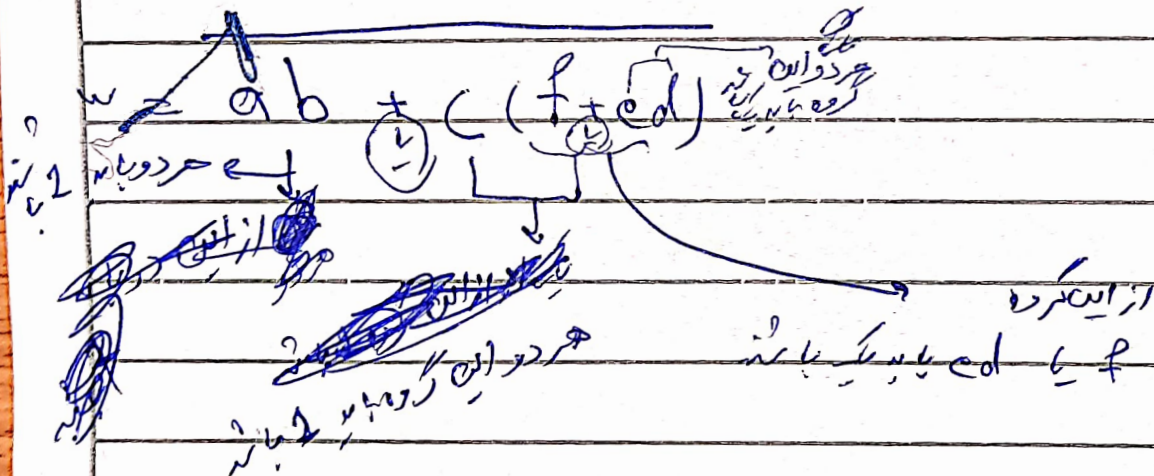 w = ab + c(f + ed)
هر دو این
گروه باید یک
یا
یا
هر دو باید 1
باشد
از این
هر دو این گروه باید 1 باشد
از این گروه
f یا ed باید یک باشد